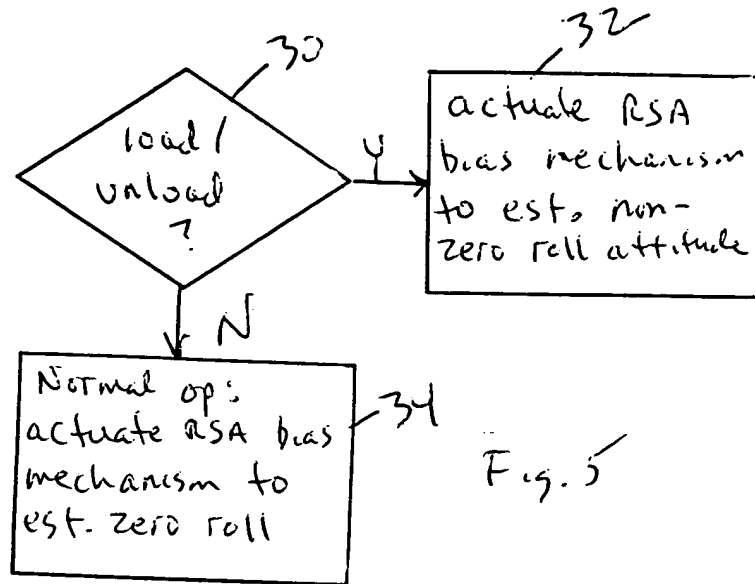 30
load/
unload
?
Y
32
actuate RSA
bias mechanism
to est. non-
zero roll attitude
N
Normal op:
actuate RSA bias
mechanism to
est. zero roll
34
Fig. 5